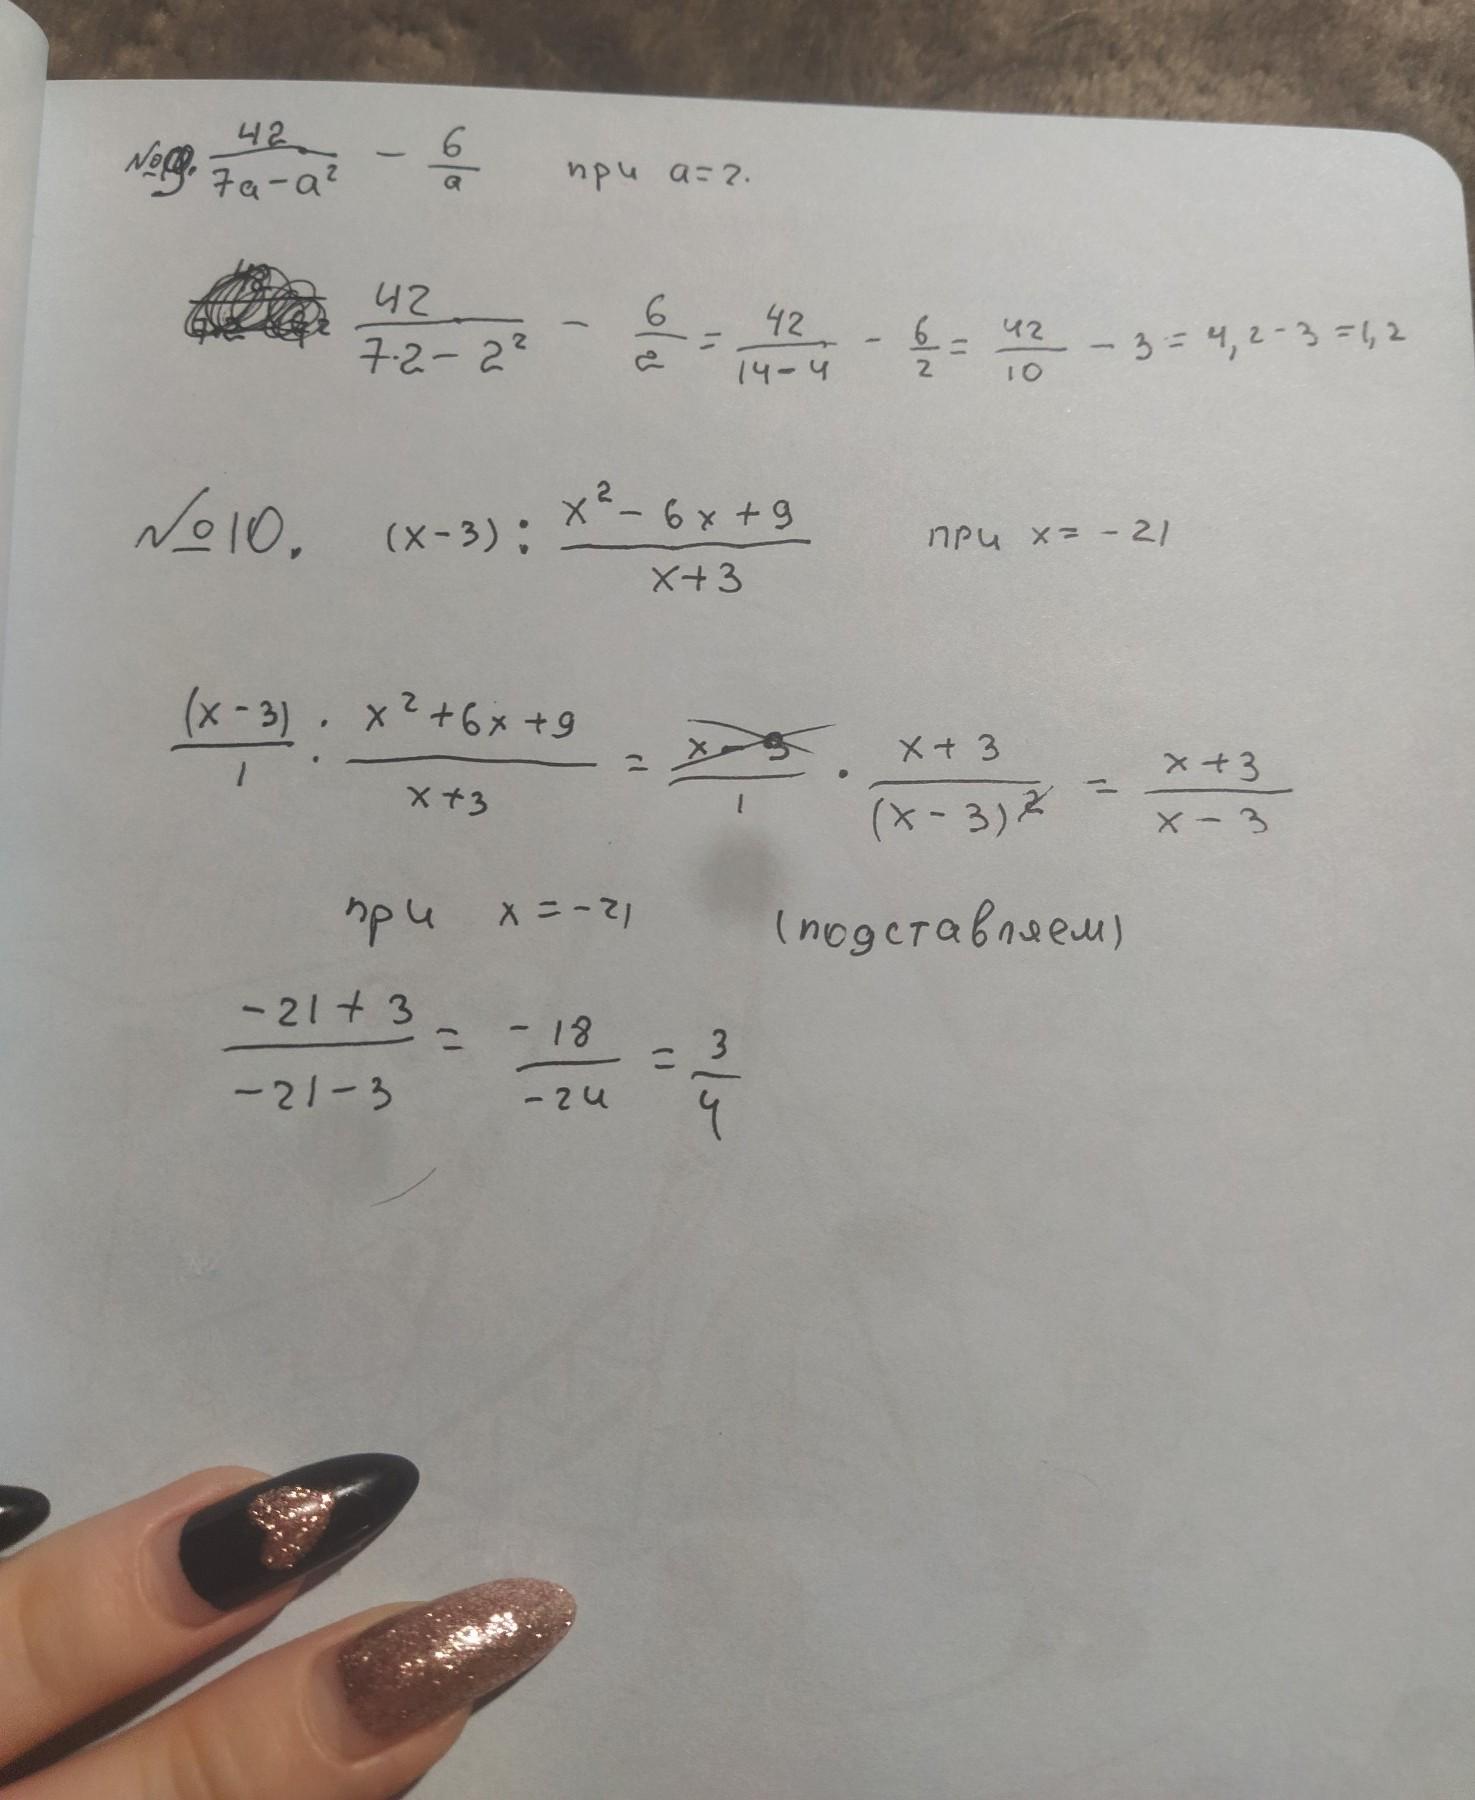 №9. 42/(7a-a²) - 6/a при a=2.
42/(7·2-2²) - 6/2 = 42/(14-4) - 6/2 = 42/10 - 3 = 4,2-3 = 1,2
№10. (x-3) : (x²-6x+9)/(x+3) при x= -21
(x-3)/1 : (x²+6x+9)/(x+3) = (x-3)/1 · (x+3)/(x-3)² = (x+3)/(x-3)
при x=-21 (подставляем)
(-21+3)/(-21-3) = -18/-24 = 3/4